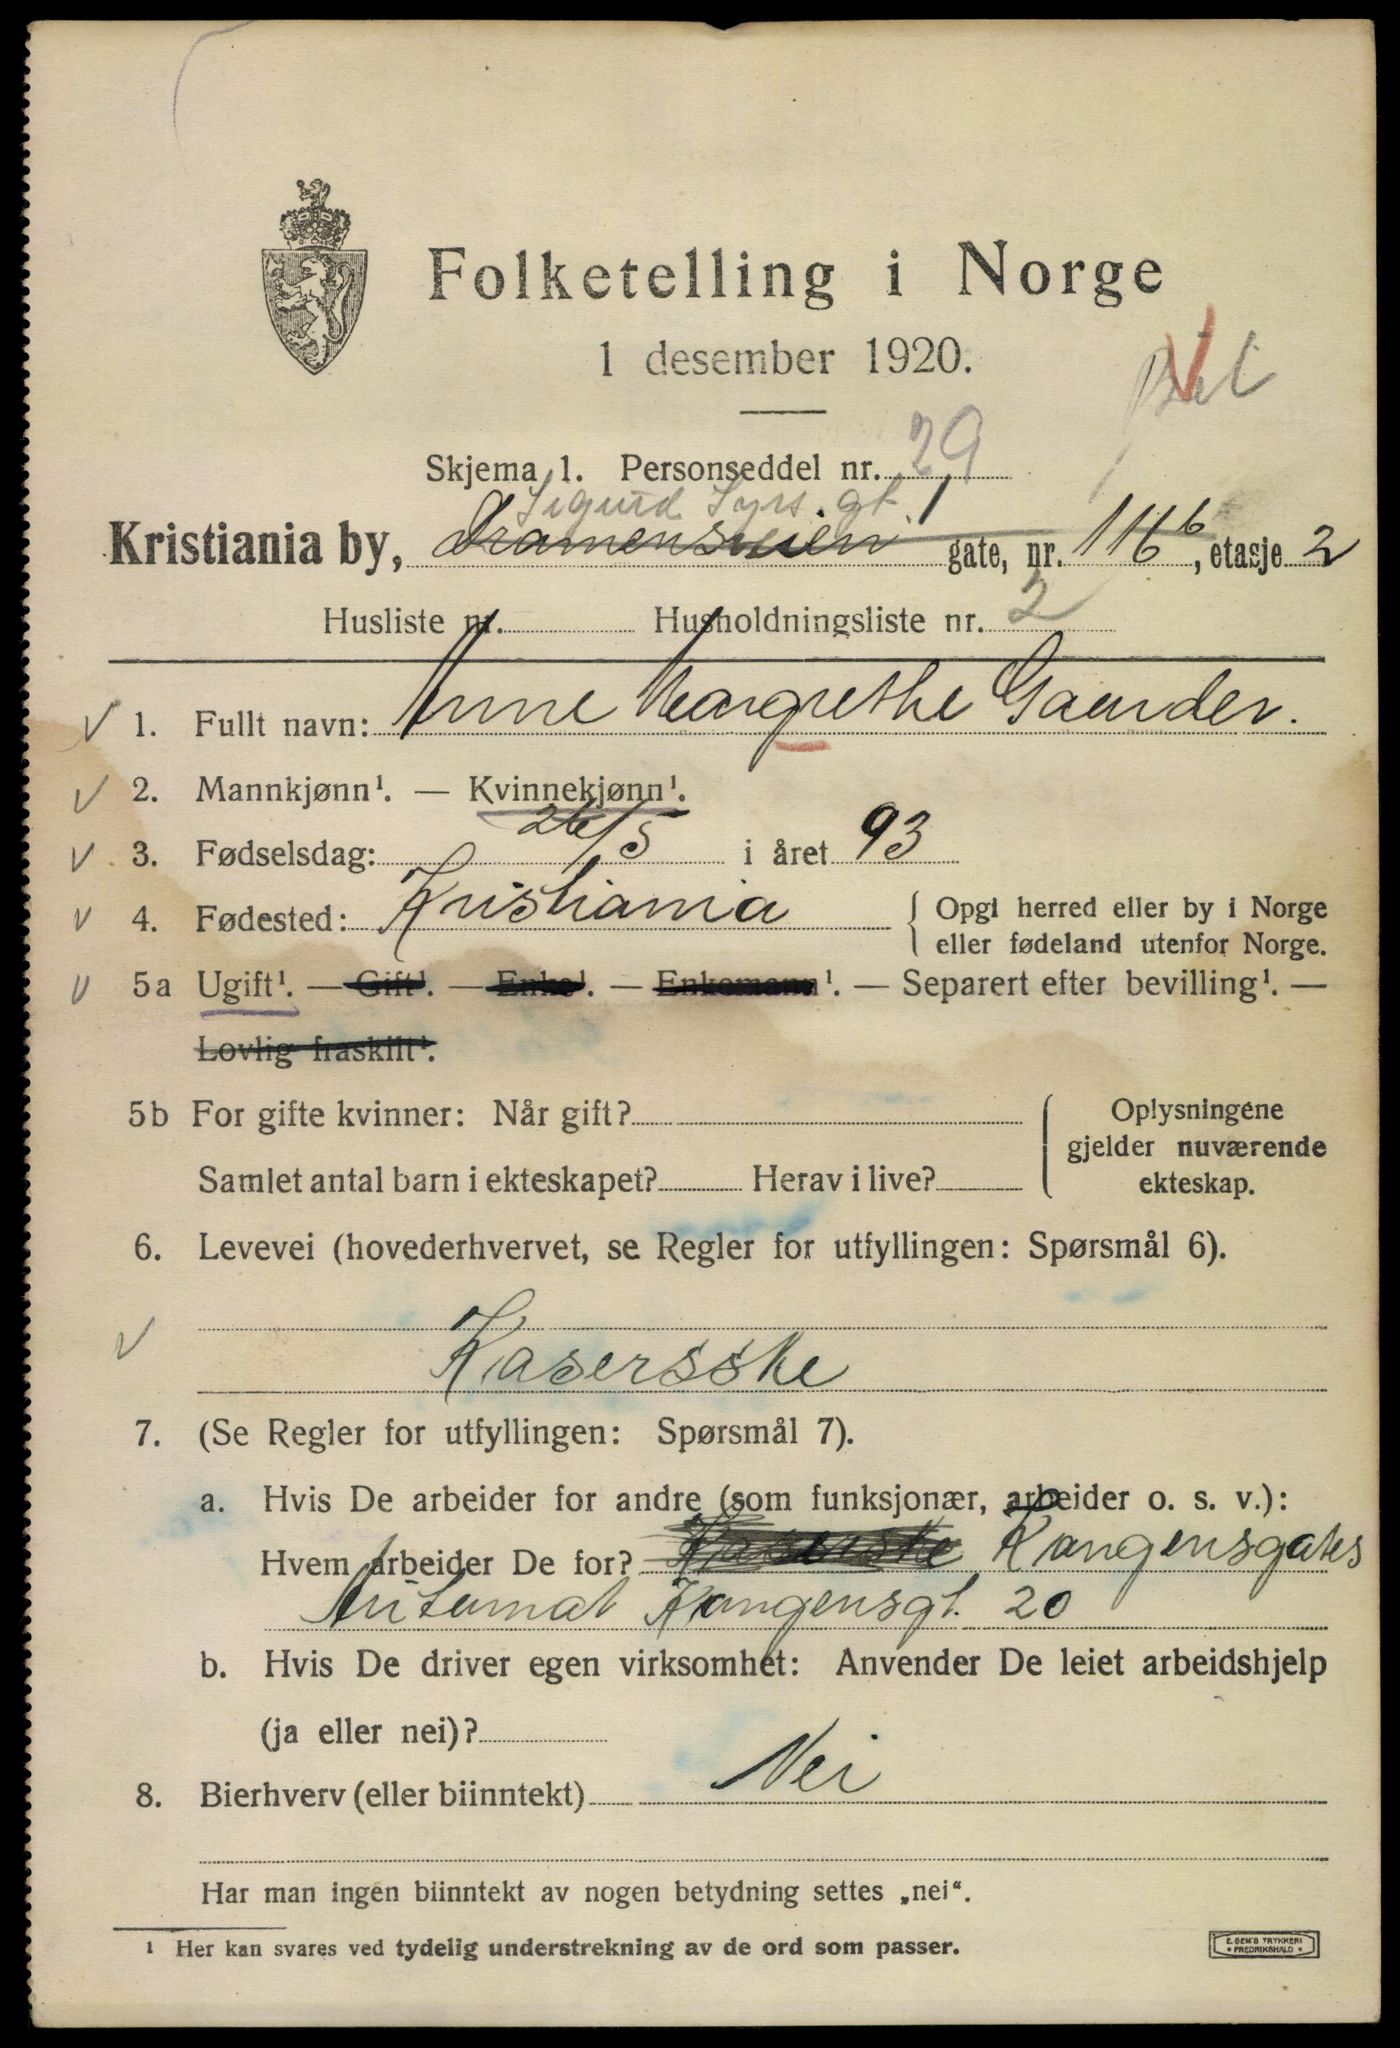 Folketelling i Norge
1 desember 1920.
Skjema 1. Personseddel nr. 29
Sigurd Syrs gt. 1
Kristiania by, Dramensveien gate, nr. 116b, etasje 2
Husliste nr. Husholdningsliste nr. 2
1. Fullt navn: Anne Margrethe Gaarder.
2. Mannkjønn¹. — Kvinnekjønn¹.
3. Fødselsdag: 26/5 i året 93
4. Fødested: Kristiania { Opgi herred eller by i Norge
eller fødeland utenfor Norge.
5a Ugift¹. — Gift¹. — Enke¹. — Enkemann¹. — Separert efter bevilling¹. —
Lovlig fraskilt¹.
5b For gifte kvinner: Når gift? { Oplysningene
gjelder nuværende
Samlet antal barn i ekteskapet? Herav i live? ekteskap.
6. Levevei (hovederhvervet, se Regler for utfyllingen: Spørsmål 6).
Kasersske
7. (Se Regler for utfyllingen: Spørsmål 7).
a. Hvis De arbeider for andre (som funksjonær, arbeider o. s. v.):
Hvem arbeider De for? Kaserske Kongensgates
Automat Kongensgt. 20
b. Hvis De driver egen virksomhet: Anvender De leiet arbeidshjelp
(ja eller nei)?
8. Bierhverv (eller biinntekt) Nei
Har man ingen biinntekt av nogen betydning settes „nei“.
¹ Her kan svares ved tydelig understrekning av de ord som passer.
E. SEM'S TRYKKERI
• FREDRIKSHALD •